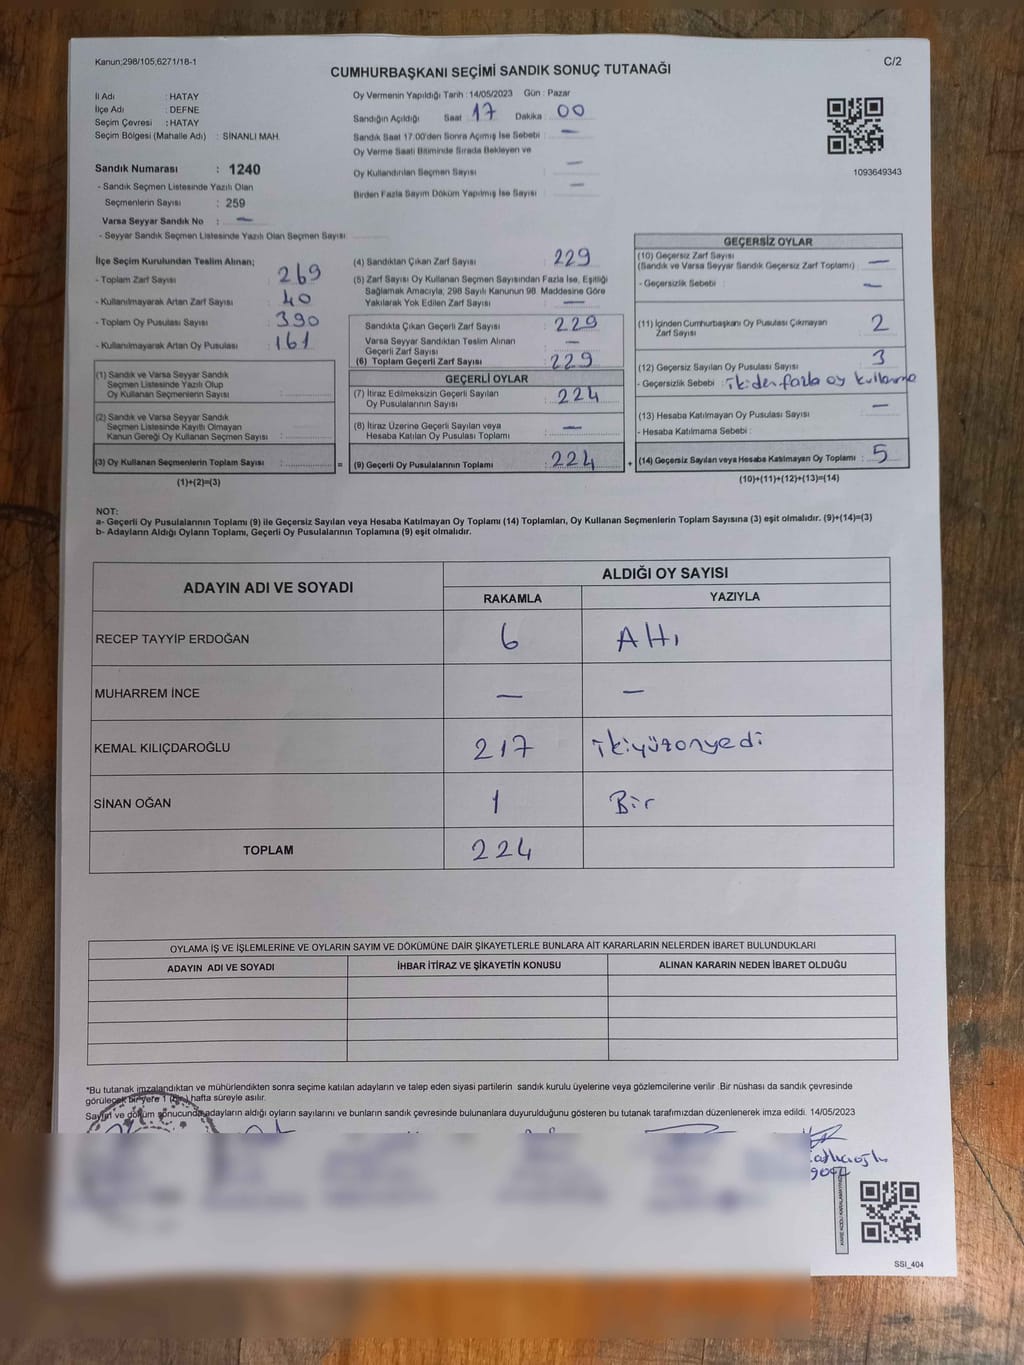 Kanun;298/105,6271/18-1
C/2
CUMHURBAŞKANI SEÇİMİ SANDIK SONUÇ TUTANAĞI
İl Adı : HATAY
İlçe Adı : DEFNE
Seçim Çevresi : HATAY
Seçim Bölgesi (Mahalle Adı) : SİNANLI MAH.
Sandık Numarası : 1240
- Sandık Seçmen Listesinde Yazılı Olan
Seçmenlerin Sayısı : 259
Varsa Seyyar Sandık No : —
- Seyyar Sandık Seçmen Listesinde Yazılı Olan Seçmen Sayısı:
Oy Vermenin Yapıldığı Tarih : 14/05/2023 Gün : Pazar
Sandığın Açıldığı Saat 17 Dakika : 00
Sandık Saat 17.00'den Sonra Açımış İse Sebebi : —
Oy Verme Saati Bitiminde Sırada Bekleyen ve
Oy Kullandırılan Seçmen Sayısı : —
Birden Fazla Sayım Döküm Yapılmış İse Sayısı : —
1093649343
İlçe Seçim Kurulundan Teslim Alınan;
- Toplam Zarf Sayısı : 269
- Kullanılmayarak Artan Zarf Sayısı : 40
- Toplam Oy Pusulası Sayısı : 390
- Kullanılmayarak Artan Oy Pusulası : 161
(1) Sandık ve Varsa Seyyar Sandık
Seçmen Listesinde Yazılı Olup
Oy Kullanan Seçmenlerin Sayısı :
(2) Sandık ve Varsa Seyyar Sandık
Seçmen Listesinde Kayıtlı Olmayan
Kanun Gereği Oy Kullanan Seçmen Sayısı :
(3) Oy Kullanan Seçmenlerin Toplam Sayısı :
(1)+(2)=(3)
(4) Sandıktan Çıkan Zarf Sayısı : 229
(5) Zarf Sayısı Oy Kullanan Seçmen Sayısından Fazla İse, Eşitliği
Sağlamak Amacıyla, 298 Sayılı Kanunun 98. Maddesine Göre
Yakılarak Yok Edilen Zarf Sayısı : —
Sandıkta Çıkan Geçerli Zarf Sayısı : 229
Varsa Seyyar Sandıktan Teslim Alınan
Geçerli Zarf Sayısı : —
(6) Toplam Geçerli Zarf Sayısı : 229
GEÇERLİ OYLAR
(7) İtiraz Edilmeksizin Geçerli Sayılan
Oy Pusulalarının Sayısı : 224
(8) İtiraz Üzerine Geçerli Sayılan veya
Hesaba Katılan Oy Pusulası Toplamı : —
= (9) Geçerli Oy Pusulalarının Toplamı : 224 +
GEÇERSİZ OYLAR
(10) Geçersiz Zarf Sayısı
(Sandık ve Varsa Seyyar Sandık Geçersiz Zarf Toplamı) : —
- Geçersizlik Sebebi : —
(11) İçinden Cumhurbaşkanı Oy Pusulası Çıkmayan
Zarf Sayısı : 2
(12) Geçersiz Sayılan Oy Pusulası Sayısı : 3
- Geçersizlik Sebebi : ikiden fazla oy kullanma
(13) Hesaba Katılmayan Oy Pusulası Sayısı : —
- Hesaba Katılmama Sebebi :
(14) Geçersiz Sayılan veya Hesaba Katılmayan Oy Toplamı : 5
(10)+(11)+(12)+(13)=(14)
NOT:
a- Geçerli Oy Pusulalarının Toplamı (9) ile Geçersiz Sayılan veya Hesaba Katılmayan Oy Toplamı (14) Toplamları, Oy Kullanan Seçmenlerin Toplam Sayısına (3) eşit olmalıdır. (9)+(14)=(3)
b- Adayların Aldığı Oyların Toplamı, Geçerli Oy Pusulalarının Toplamına (9) eşit olmalıdır.
ADAYIN ADI VE SOYADI ALDIĞI OY SAYISI
RAKAMLA YAZIYLA
RECEP TAYYİP ERDOĞAN 6 Altı
MUHARREM İNCE — —
KEMAL KILIÇDAROĞLU 217 ikiyüzonyedi
SİNAN OĞAN 1 Bir
TOPLAM 224
OYLAMA İŞ VE İŞLEMLERİNE VE OYLARIN SAYIM VE DÖKÜMÜNE DAİR ŞİKAYETLERLE BUNLARA AİT KARARLARIN NELERDEN İBARET BULUNDUKLARI
ADAYIN ADI VE SOYADI İHBAR İTİRAZ VE ŞİKAYETİN KONUSU ALINAN KARARIN NEDEN İBARET OLDUĞU
*Bu tutanak imzalandıktan ve mühürlendikten sonra seçime katılan adayların ve talep eden siyasi partilerin sandık kurulu üyelerine veya gözlemcilerine verilir .Bir nüshası da sandık çevresinde
görülecek bir yere 1 (Bir) hafta süreyle asılır.
Sayım ve döküm sonucunda adayların aldığı oyların sayılarını ve bunların sandık çevresinde bulunanlara duyurulduğunu gösteren bu tutanak tarafımızdan düzenlenerek imza edildi. 14/05/2023
SSI_404